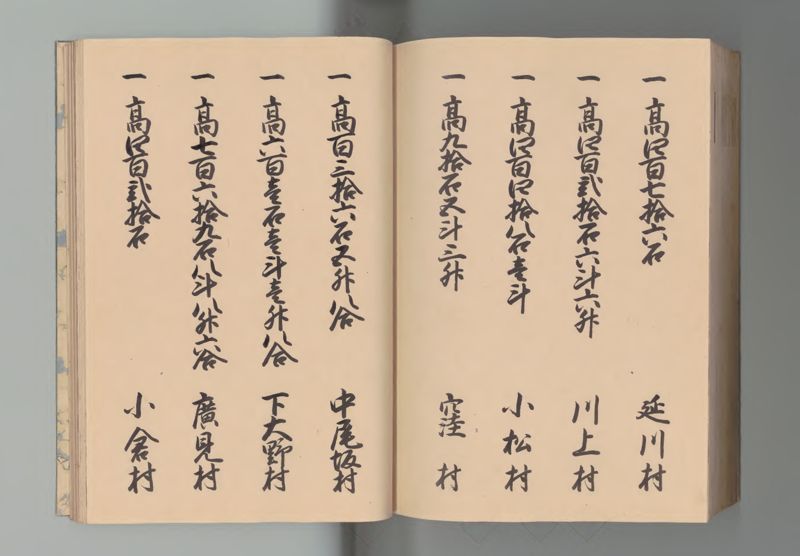 一 高四百七拾六石 延川村
一 高四百弐拾石六斗六升 川上村
一 高四百四拾八石壱斗 小松村
一 高九拾石五斗三升 窪村
一 高百三拾六石五升八合 中尾坂村
一 高六百壱石壱斗壱升八合 下大野村
一 高七百六拾九石八斗八升六合 廣見村
一 高四百弐拾石 小倉村